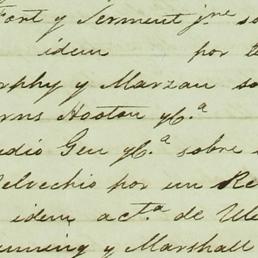 Fort y Serment jne so
idem por te
rphy y Marzau so
rns Hooton yC.a
udio Gen yC.a sobre
elvechio por un Re
idem act.a de Ule
unning y Marshall